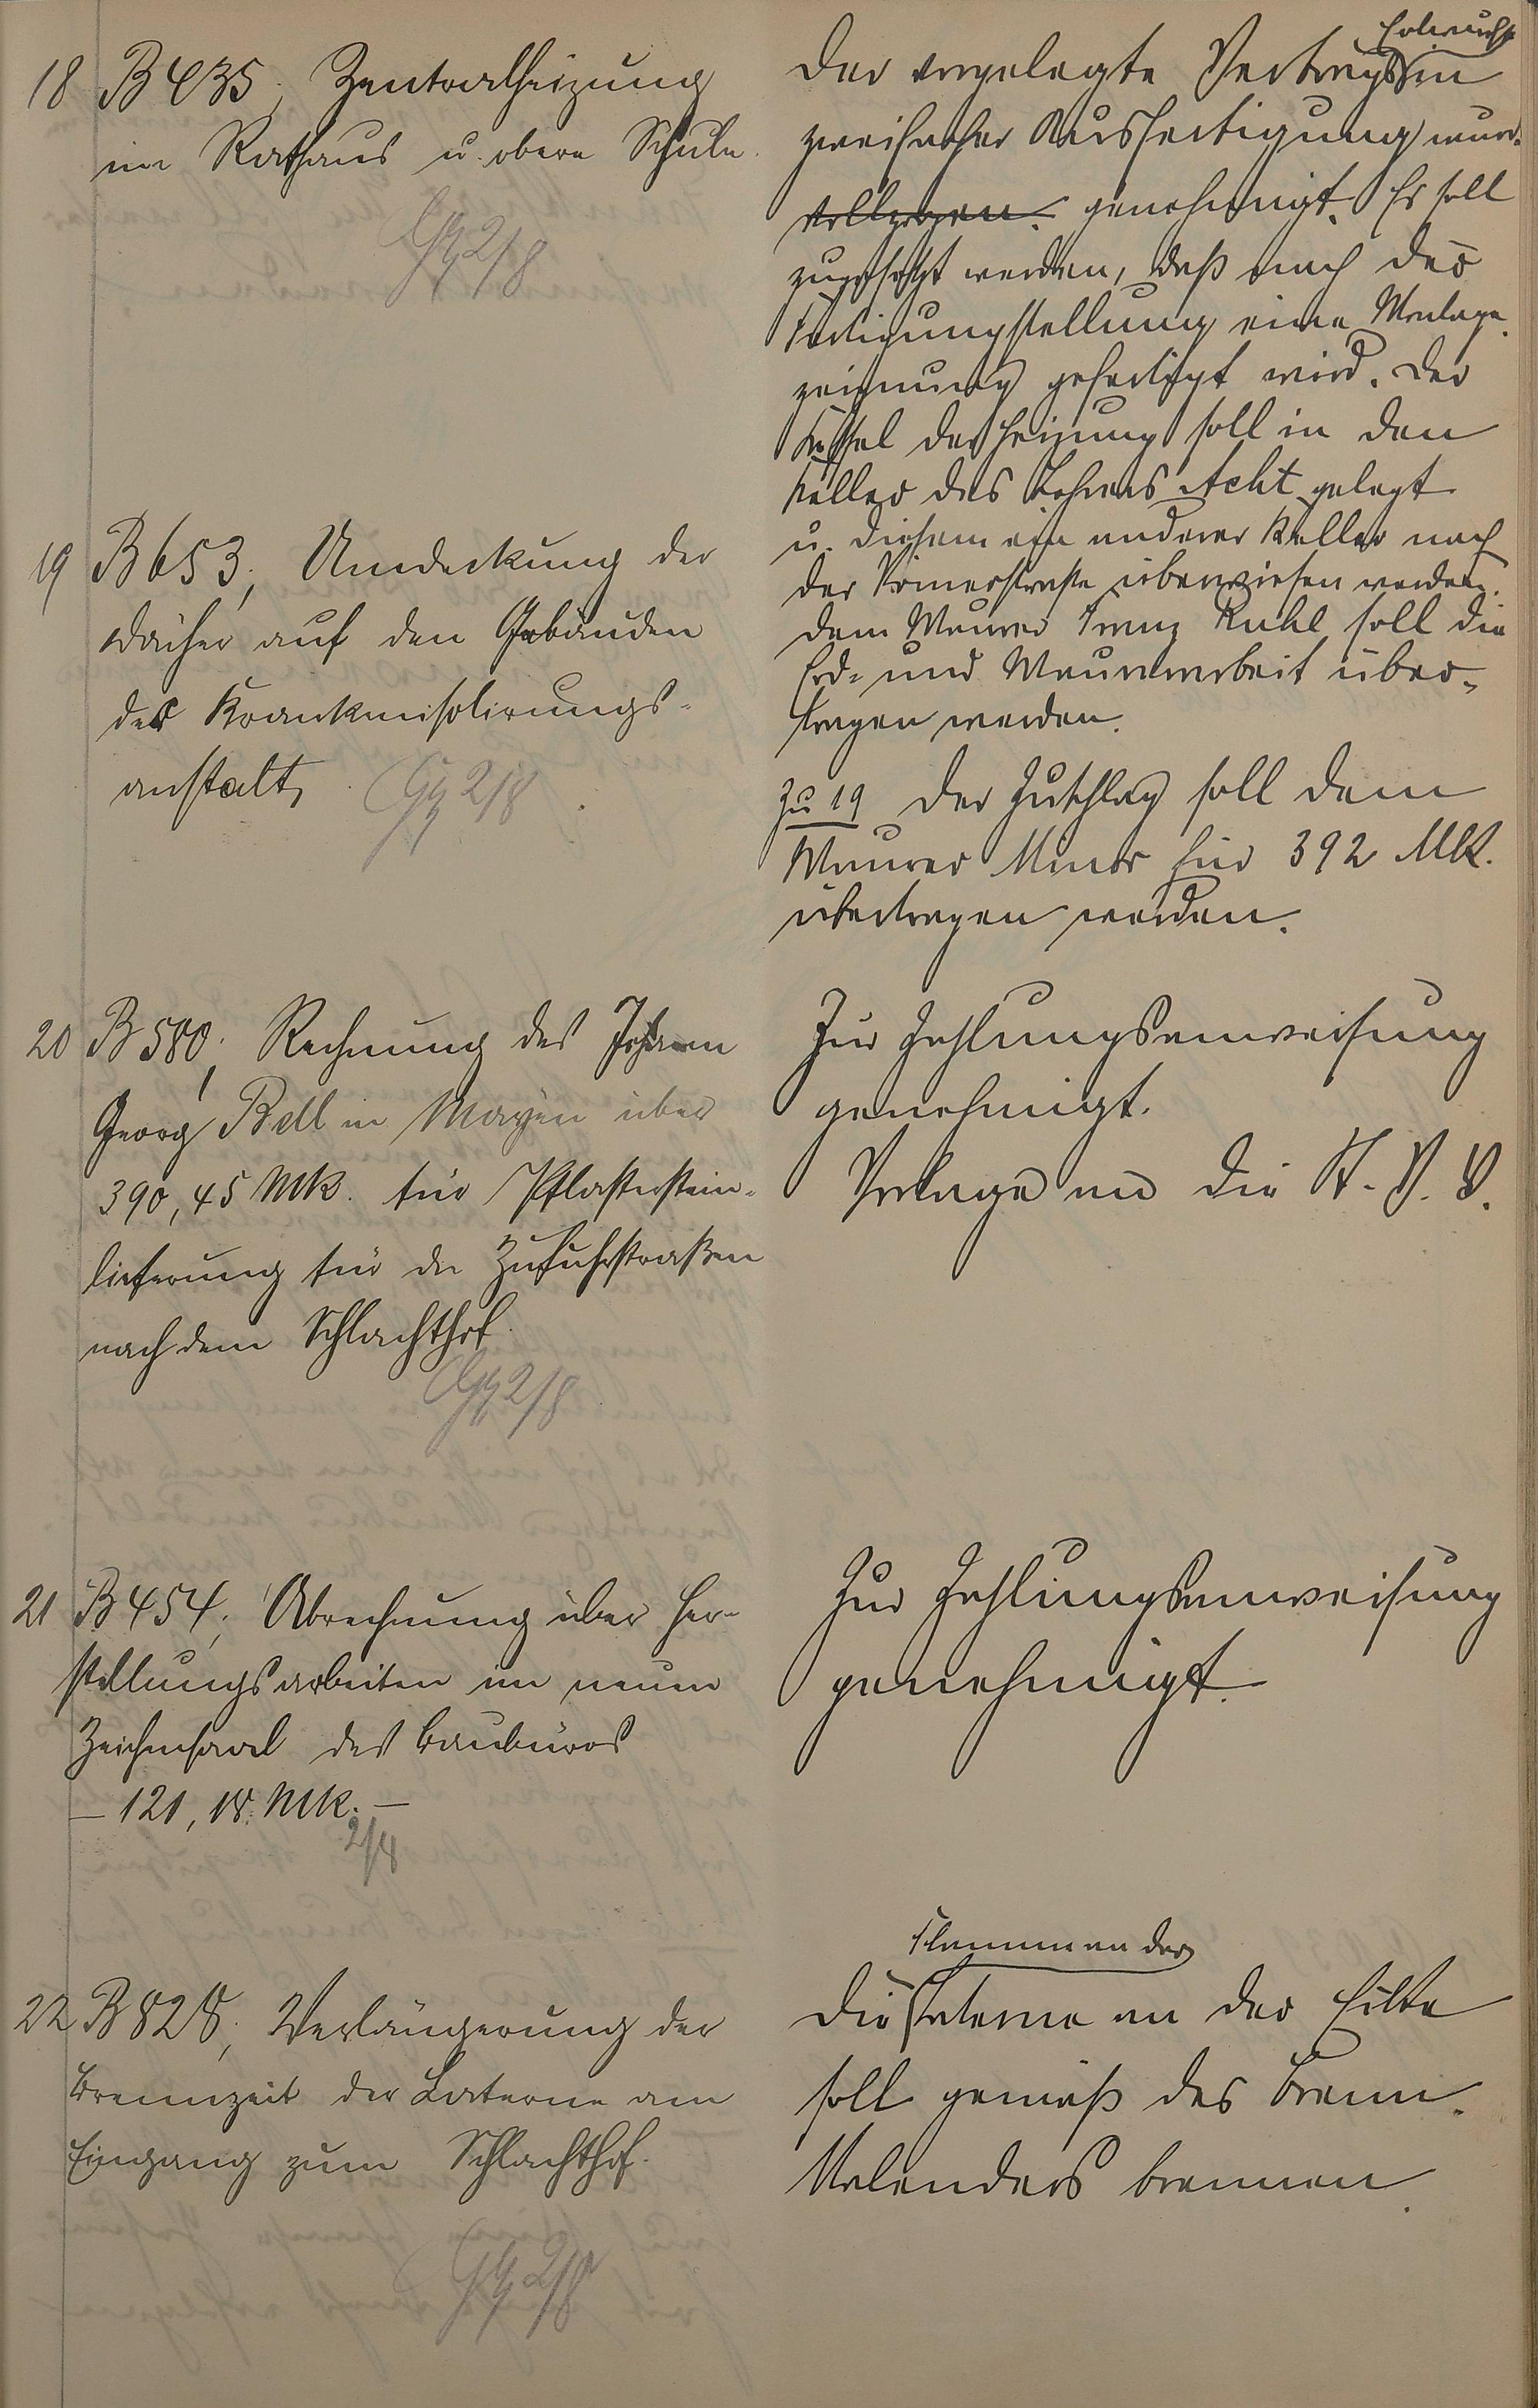 18 B 435, Zentralheizung
im Rathaus u. obere Schule.
Gz 2/8
Der vorgelegte Vertrags Entwurf in
zweifacher Ausfertigung wurde
vollzogen. genehmigt. Es soll
zugesetzt werden, daß nach der
Fertigungstellung eine Montage-
zeichnung gefertigt wird. Der
Kessel der Heizung soll in den
Keller des Lehrers Acht gelegt
u. diesem ein anderer Keller nach
der Römerstraße überwiesen werden.
Dem Maurer Franz Kuhl soll die
Erd- und Maurerarbeit über-
tragen werden.
19 B 653, Umdeckung der
Dächer auf den Gebäuden
der Krankenisolirungs-
anstalt,
Gz 2/8
zu 19 Der Zuschlag soll dem
Maurer für 392 Mk.
übertragen werden.
20 B 580, Rechnung des Johann
Georg Bell in Mayen über
390,45 Mk. für Pflasterstein-
lieferung für die Zufuhrstraßen
nach dem Schlachthof.
Gz 2/8
Zur Zahlungsanweisung
genehmigt.
Vorlage an die St. V. V.
21 B 454, Abrechnung über Her-
stellungsarbeiten im neuen
Zeichensaal des Baubüros
- 121,18 Mk. -
2/8
Zur Zahlungsanweisung
genehmigt.
22 B 828, Verlängerung der
Brennzeit der Laterne am
Eingang zum Schlachthof.
Gz 2/8
Flammen der
Die Laterne an der
soll gemäß des Brenn-
kalenders brennen.